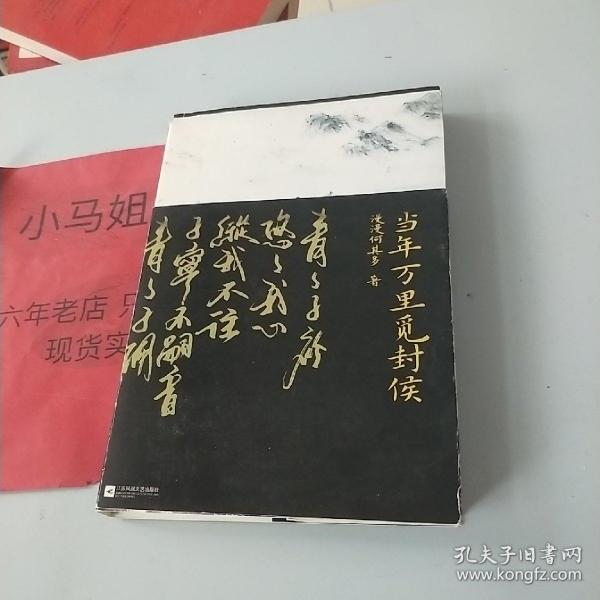 小马姐
六年老店 只
现货实
当年万里觅封侯
漫漫何其多 著
青々子衿
悠々我心
縱我不往
子寧不嗣音
青々子佩
江苏凤凰文艺出版社
孔夫子旧书网
www.kongfz.com